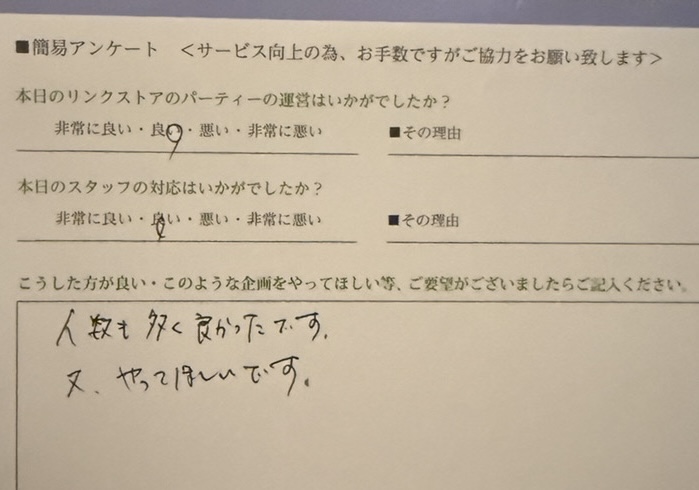 ■簡易アンケート <サービス向上の為、お手数ですがご協力をお願い致します>
本日のリンクストアのパーティーの運営はいかがでしたか?
非常に良い・良い・悪い・非常に悪い ■その理由
本日のスタッフの対応はいかがでしたか?
非常に良い・良い・悪い・非常に悪い ■その理由
こうした方が良い・このような企画をやってほしい等、ご要望がございましたらご記入ください。
人数も多く良かったです。
又、やってほしいです。